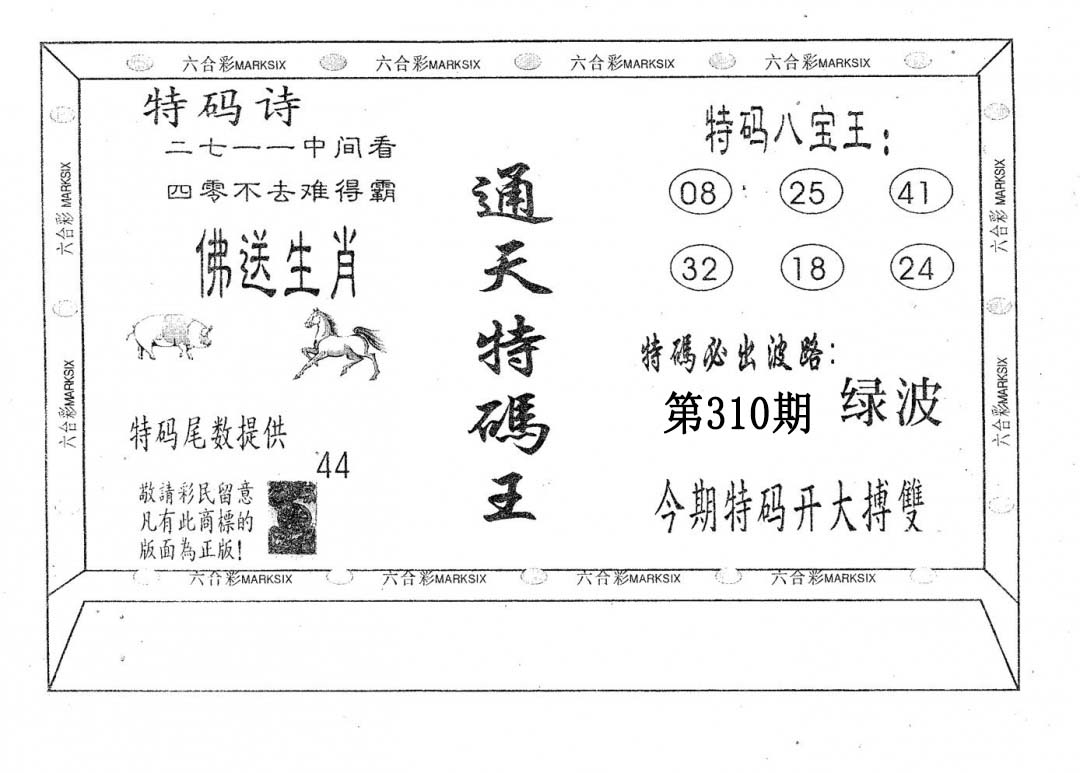 六合彩MARKSIX 六合彩MARKSIX 六合彩MARKSIX 六合彩MARKSIX
特码诗
二七一一中间看
四零不去难得霸
佛送生肖
特码尾数提供
44
敬請彩民留意
凡有此商標的
版面為正版!
通天特碼王
特码八宝王:
08 25 41
32 18 24
特碼必出波路:
第310期 绿波
今期特码开大搏雙
六合彩 MARKSIX
六合彩MARKSIX
六合彩 MARKSIX
六合彩MARKSIX
六合彩MARKSIX 六合彩MARKSIX 六合彩MARKSIX 六合彩MARKSIX